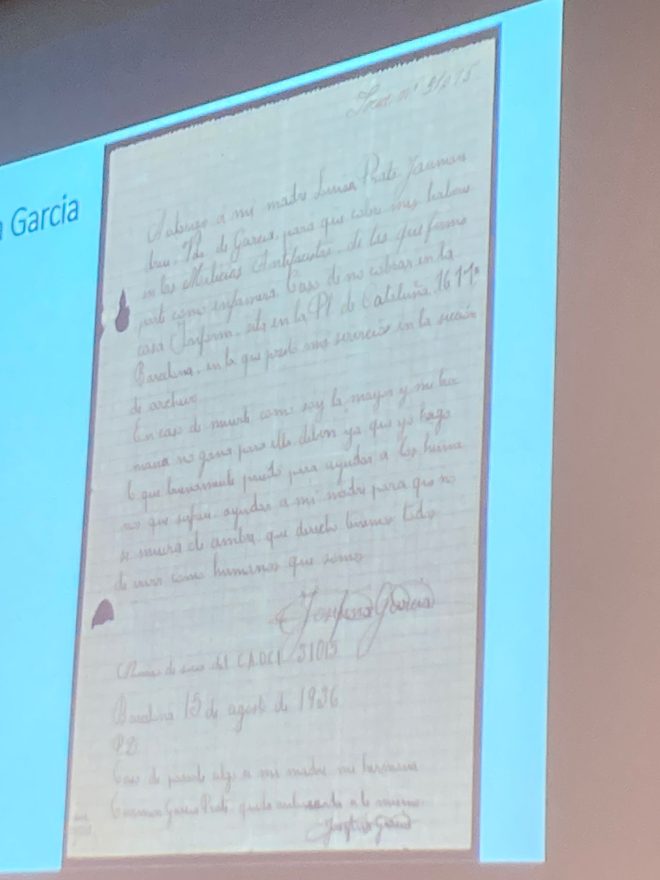 Garcia
Autorizo a mi madre Luisa Prats
de Garcia, para que cobre mis haberes
en las Milicias Antifascistas, de las que formo
parte como enfermera. Caso de no cobrar en la
casa en la Pl de Cataluña, 16
Barcelona, en la que presto mis servicios en la sección
de archivo.
En caso de muerte como soy la mayor y mi her
mana no gana para ella, deben ya que yo hago
lo que buenamente puedo para ayudar a los huma
nos que sufren, ayudar a mi madre para que no
se muera de ambre, que derecho tenemos todos
de vivir como humanos que somos
Josefina Garcia
del C.A.D.C.I. 31015
Barcelona 15 de agosto de 1936
P.D.
Caso de pasarle algo a mi madre mi hermana
Garcia Prats queda a lo mismo
Josefina Garcia